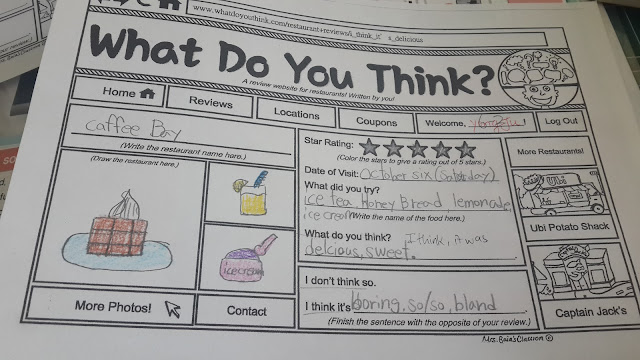 www.whatdoyouthink.com/restaurant+reviews/i_think_it's_delicious
What Do You Think?
A review website for restaurants! Written by you!
Home
Reviews
Locations
Coupons
Welcome, !
Log Out
caffee Bay
(Write the restaurant name here.)
(Draw the restaurant here.)
icecream
More Photos!
Contact
Star Rating:
(Color the stars to give a rating out of 5 stars.)
Date of Visit: October six (Saturday)
What did you try?
ice tea, honey Bread lemonade,
icecream (Write the name of the food here.)
What do you think? I think, it was
delcious, sweet.
I don't think so.
I think it's boring, so/so, bland
(Finish the sentence with the opposite of your review.)
More Restaurants!
Ubi
Ubi Potato Shack
Captain Jack's
Mrs. Baia's Classroom ©